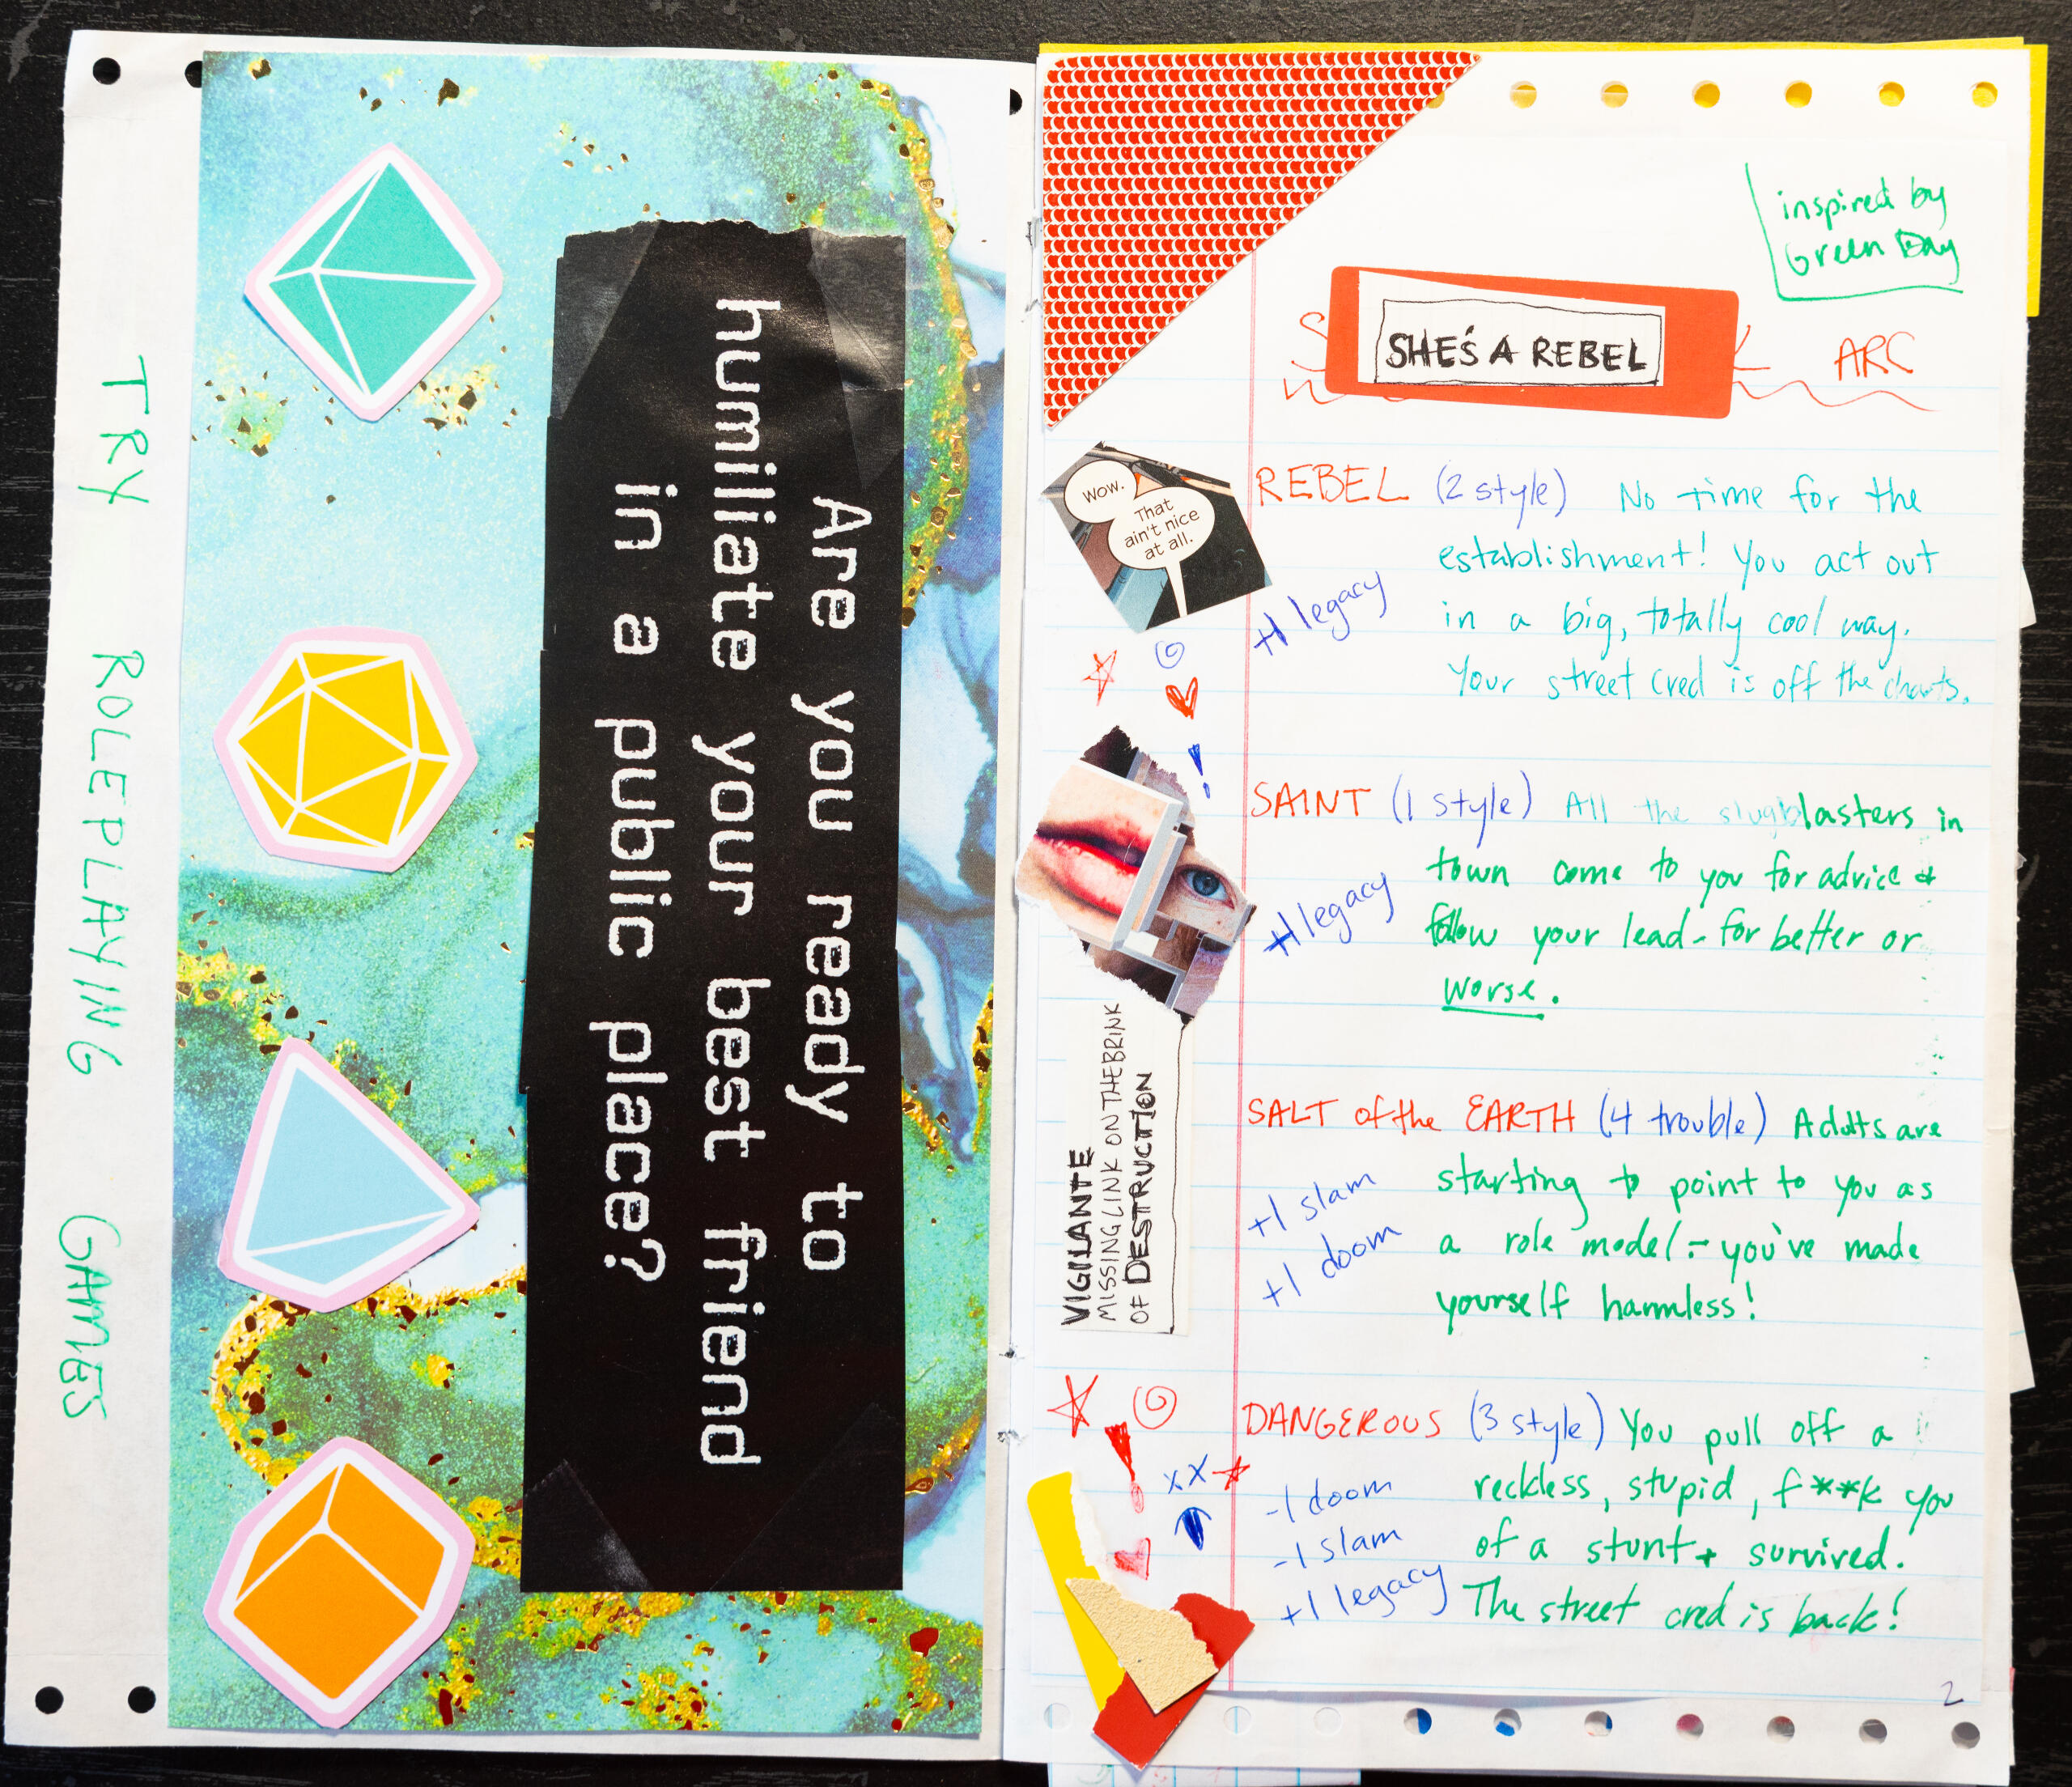 TRY ROLEPLAYING GAMES
Are you ready to
humiliate your best friend
in a public place?
inspired by
Green Day
SHE'S A REBEL
ARC
Wow.
That
ain't nice
at all.
REBEL (2 style) No time for the
establishment! You act out
in a big, totally cool way.
Your street cred is off the charts.
+1 legacy
SAINT (1 style) All the slugblasters in
town come to you for advice &
follow your lead - for better or
worse.
+1 legacy
VIGILANTE
MISSING LINK ON THE BRINK
OF DESTRUCTION
SALT of the EARTH (4 trouble) Adults are
starting to point to you as
a role model - you've made
yourself harmless!
+1 slam
+1 doom
DANGEROUS (3 style) You pull off a
reckless, stupid, f**k you
of a stunt + survived.
The street cred is back!
-1 doom
-1 slam
+1 legacy
2